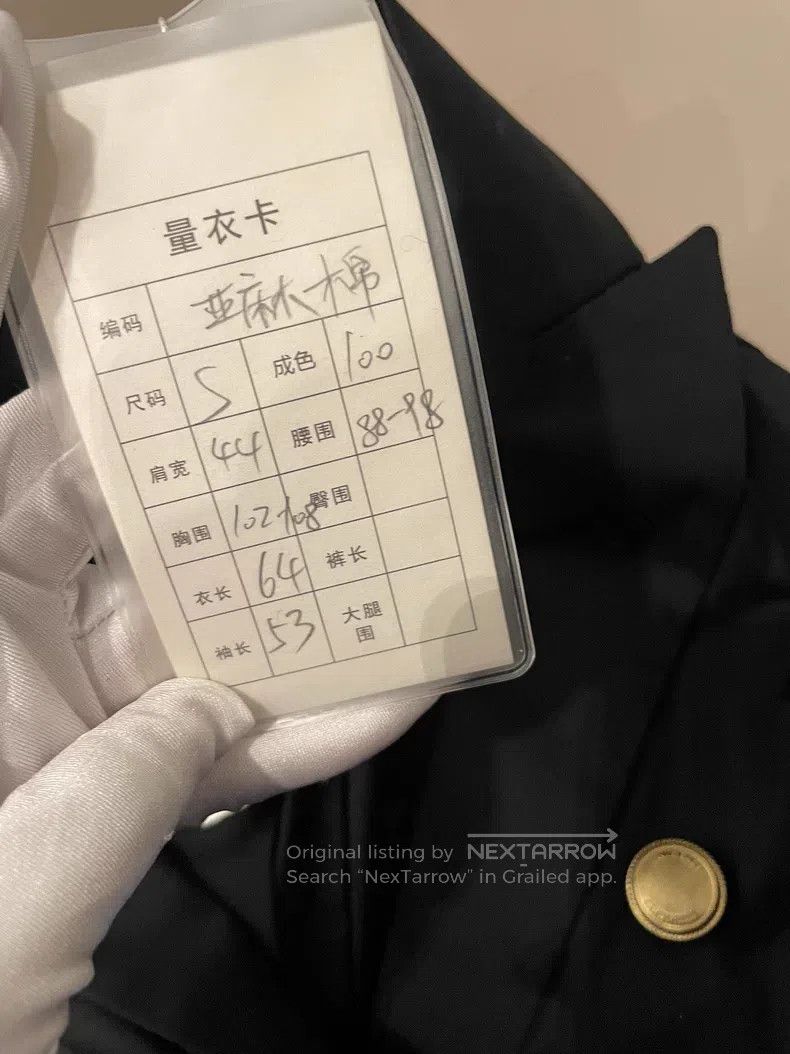 量衣卡
编码 亚麻 棉
尺码 S 成色 100
肩宽 44 腰围 88-98
胸围 102-108 臀围
衣长 64 裤长
袖长 53 大腿围
Original listing by NEXTARROW
Search “NexTarrow” in Grailed app.